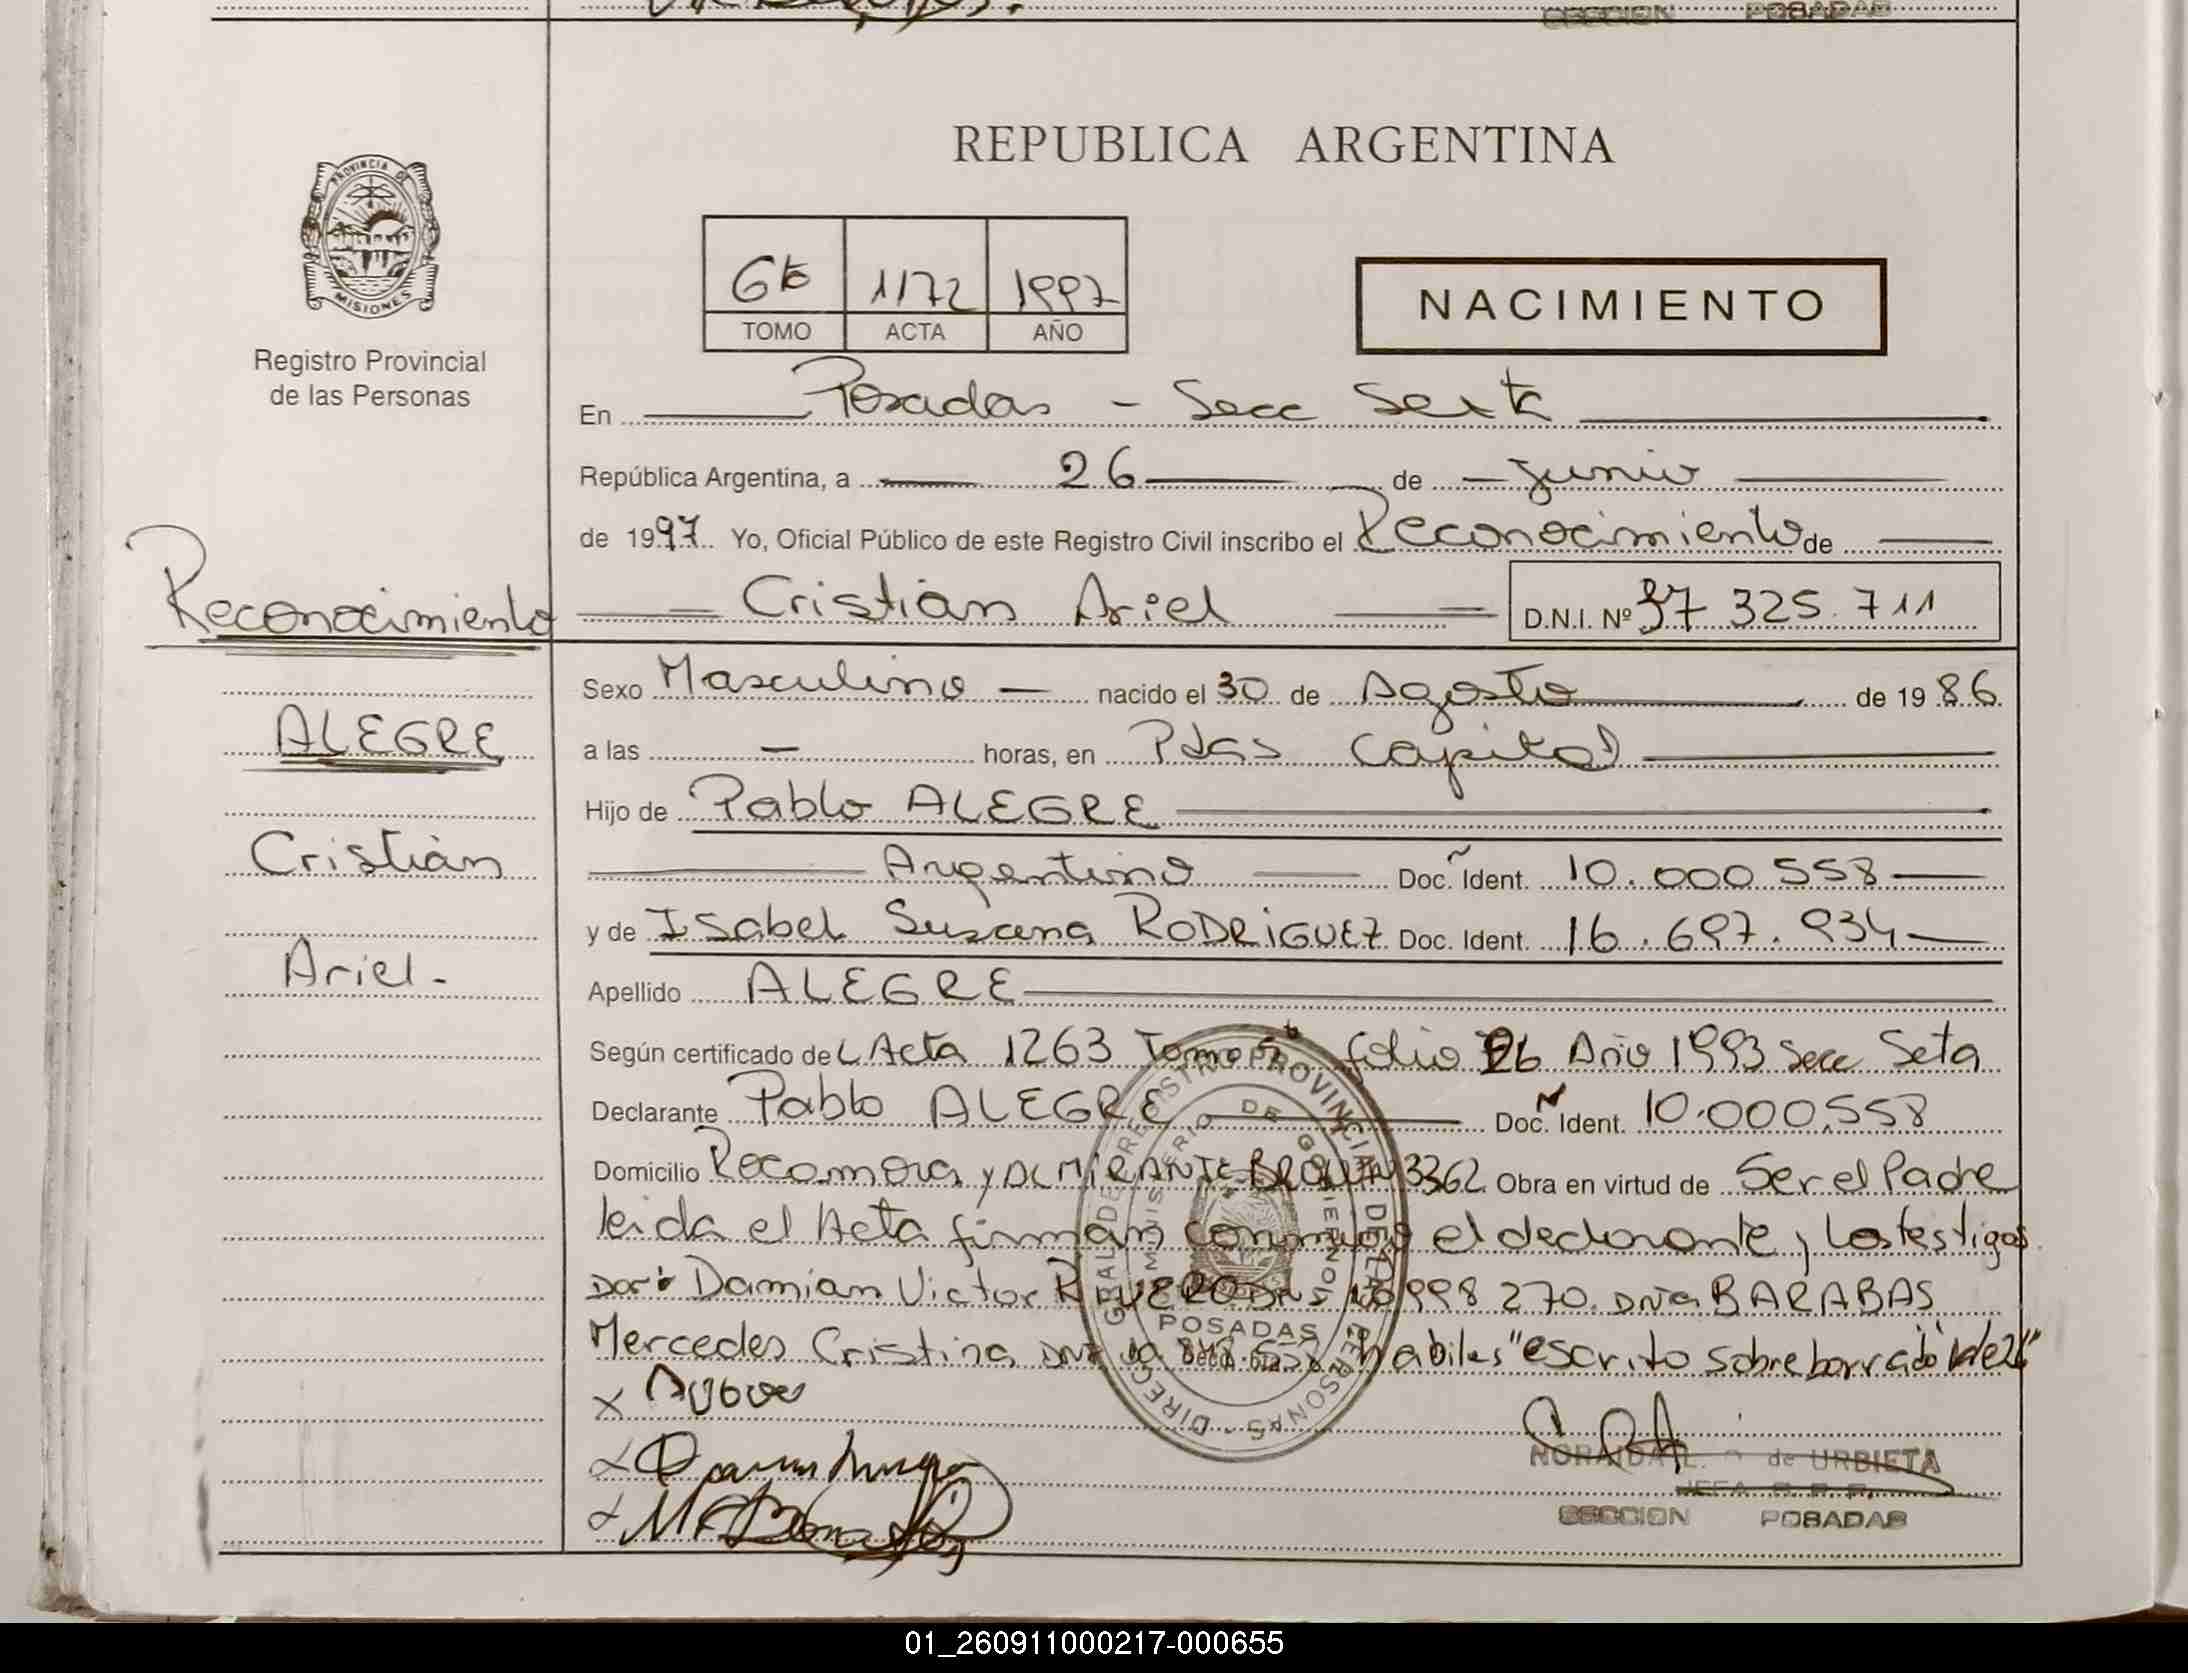 SECCION POSADAS
REPUBLICA ARGENTINA
PROVINCIA DE MISIONES
Registro Provincial
de las Personas
6to 1172 1997
TOMO ACTA AÑO
NACIMIENTO
En Posadas - Secc Sexta
República Argentina, a 26 de Junio
de 1997 Yo, Oficial Público de este Registro Civil inscribo el Reconocimiento de
Cristian Ariel D.N.I. Nº 37 325.711
Reconocimiento
ALEGRE
Cristian
Ariel.-
Sexo Masculino - nacido el 30 de Agosto de 1986
a las - horas, en Pdas Capital
Hijo de Pablo ALEGRE
Argentino Doc. Ident. 10.000.558
y de Isabel Susana RODRIGUEZ Doc. Ident. 16.697.934
Apellido ALEGRE
Según certificado del Acta 1263 Tomo 5to folio 26 Año 1993 Secc Seta
Declarante Pablo ALEGRE Doc. Ident. 10.000.558
Domicilio Rocamora y ALMIRANTE BROWN 3362 Obra en virtud de Ser el Padre
leida el Acta firman conmigo el declarante y los testigos
Damian Victor 998 270. Dña BARABAS
Mercedes Cristina habiles "escrito sobre borrado"
DIRECC. GRAL. DE REGISTRO PROVINCIAL DE LAS PERSONAS
MINISTERIO DE GOBIERNO
POSADAS
de URBIETA
SECCION POSADAS
01_260911000217-000655